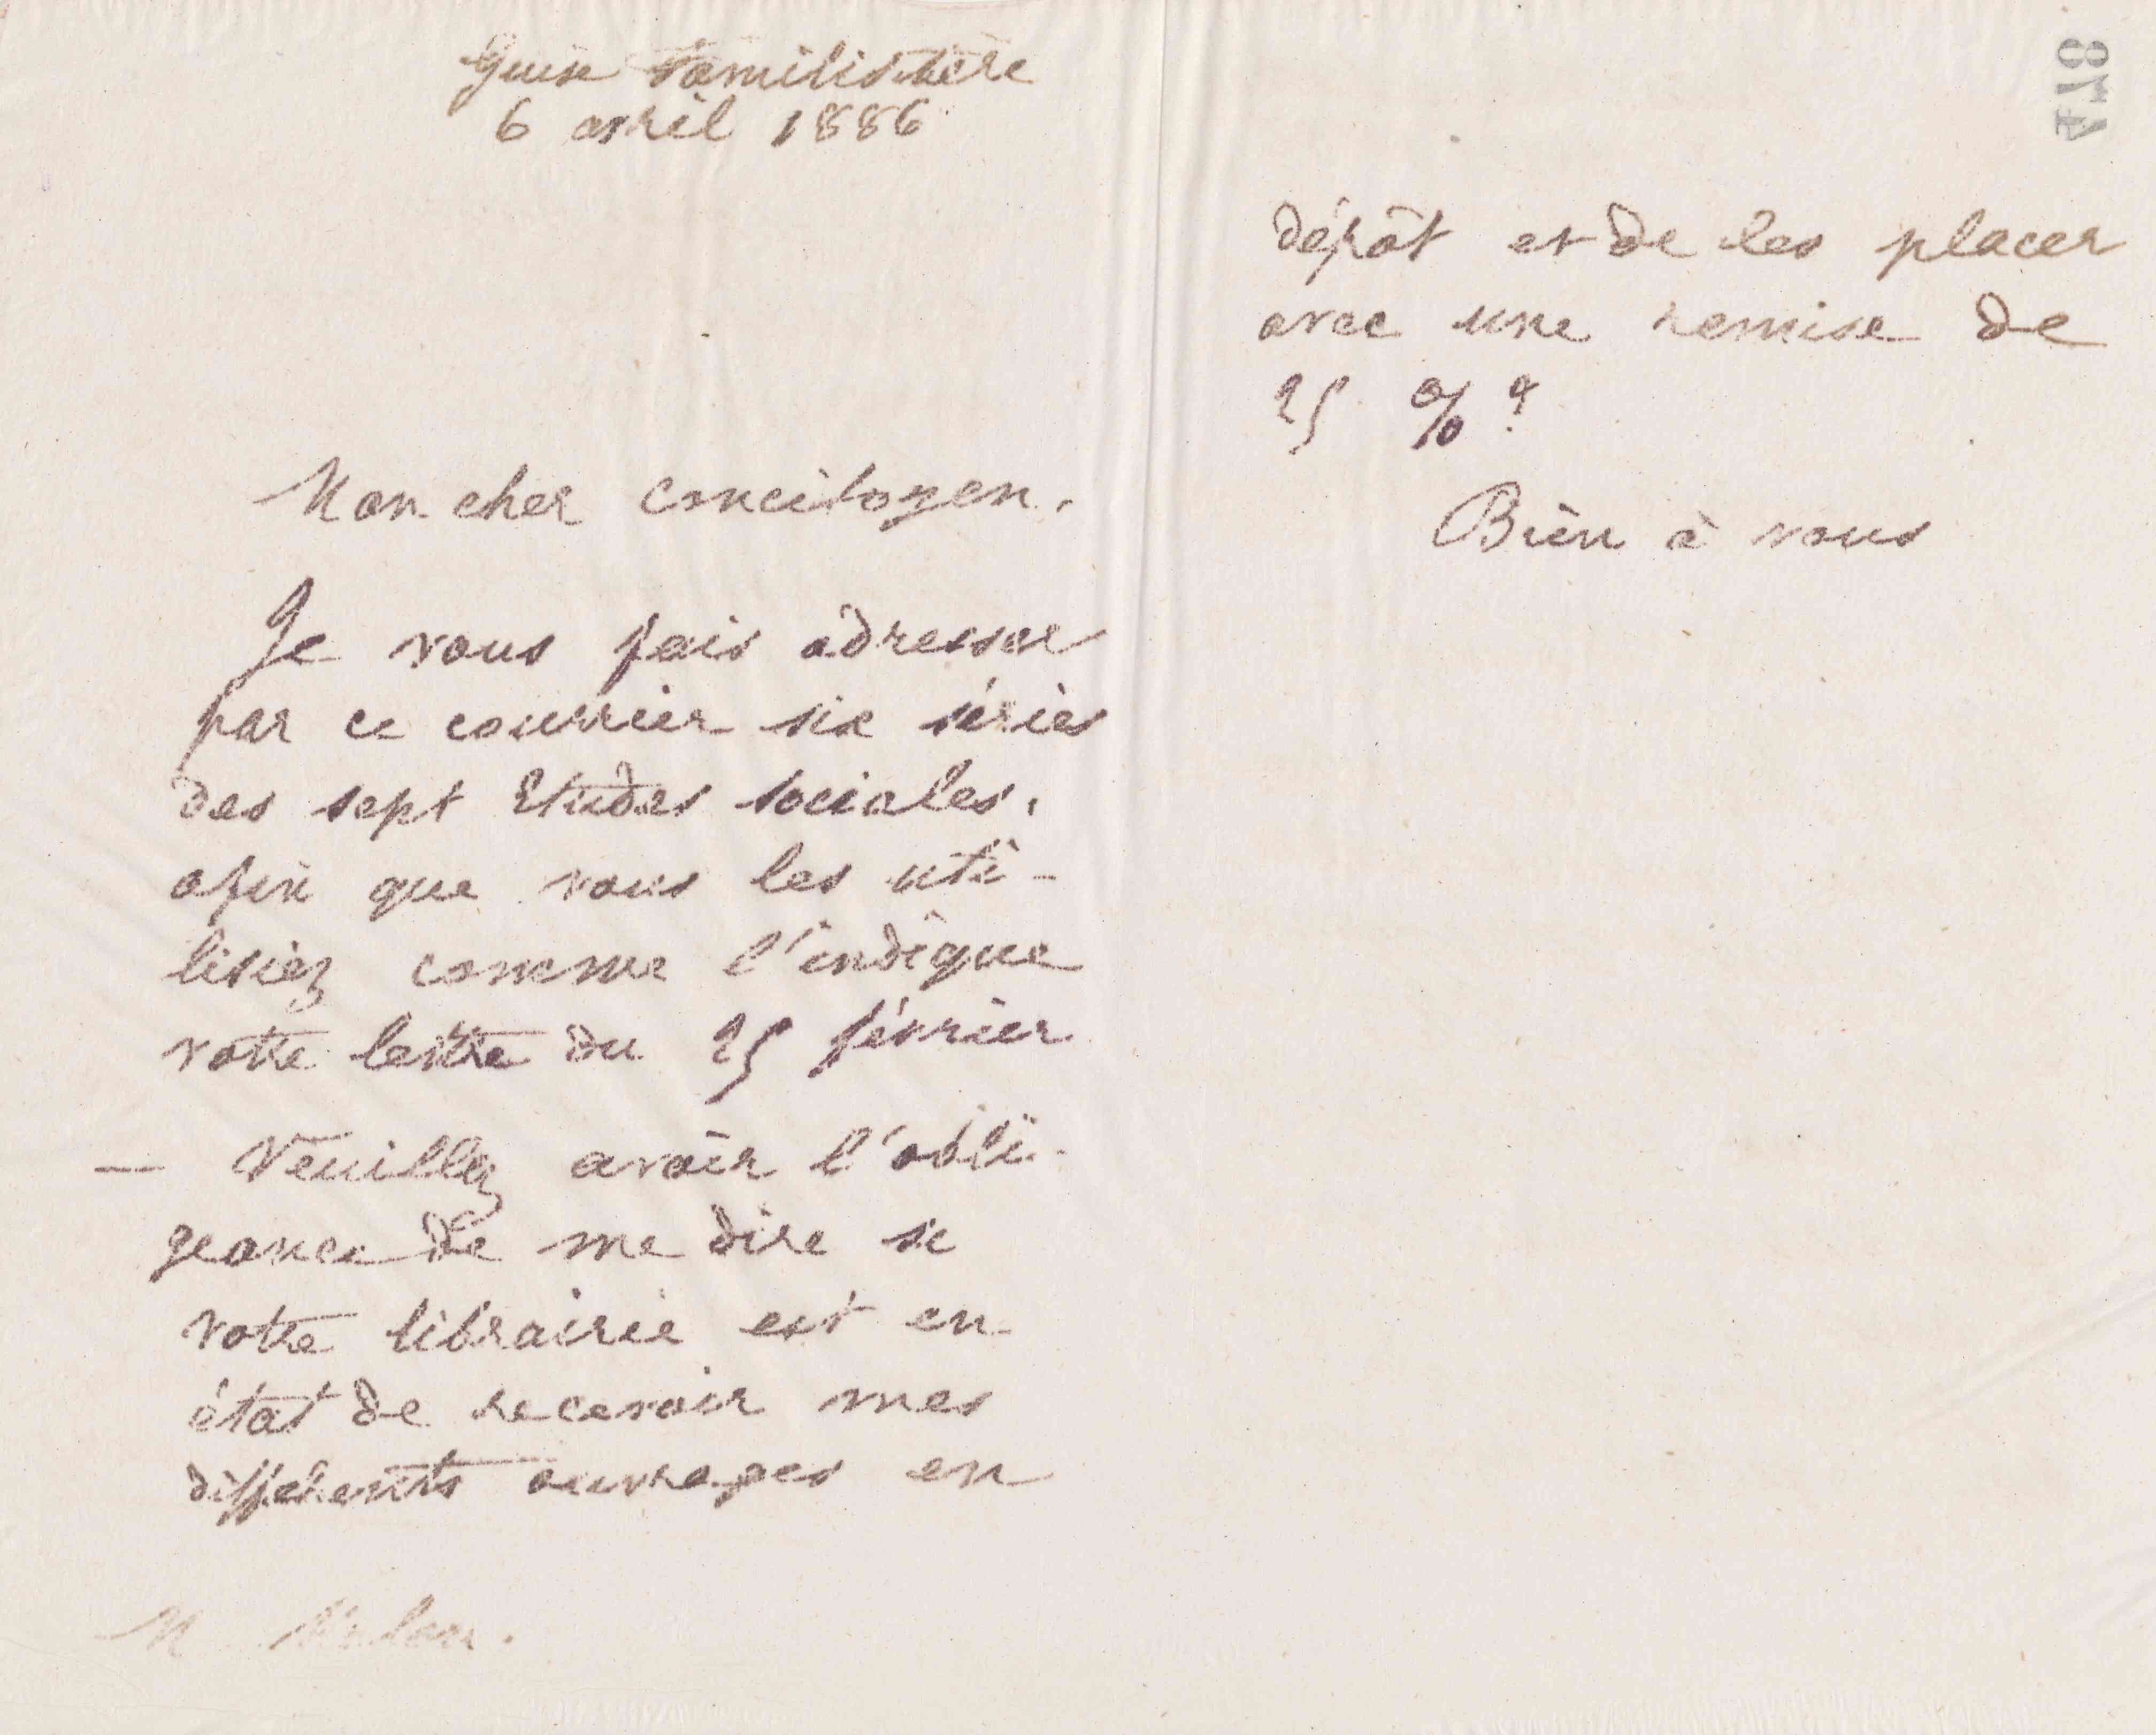 Guise Familistère
6 avril 1886
Mon cher concitoyen,
Je vous fais adresser
par ce courrier six séries
des sept Etudes sociales,
afin que vous les uti-
lisiez comme l'indique
votre lettre du 25 février
— Veuillez avoir l'obli-
geance de me dire si
votre librairie est en
état de recevoir mes
différents ouvrages en
M
dépôt et de les placer
avec une remise de
25 % ?
Bien à vous
874